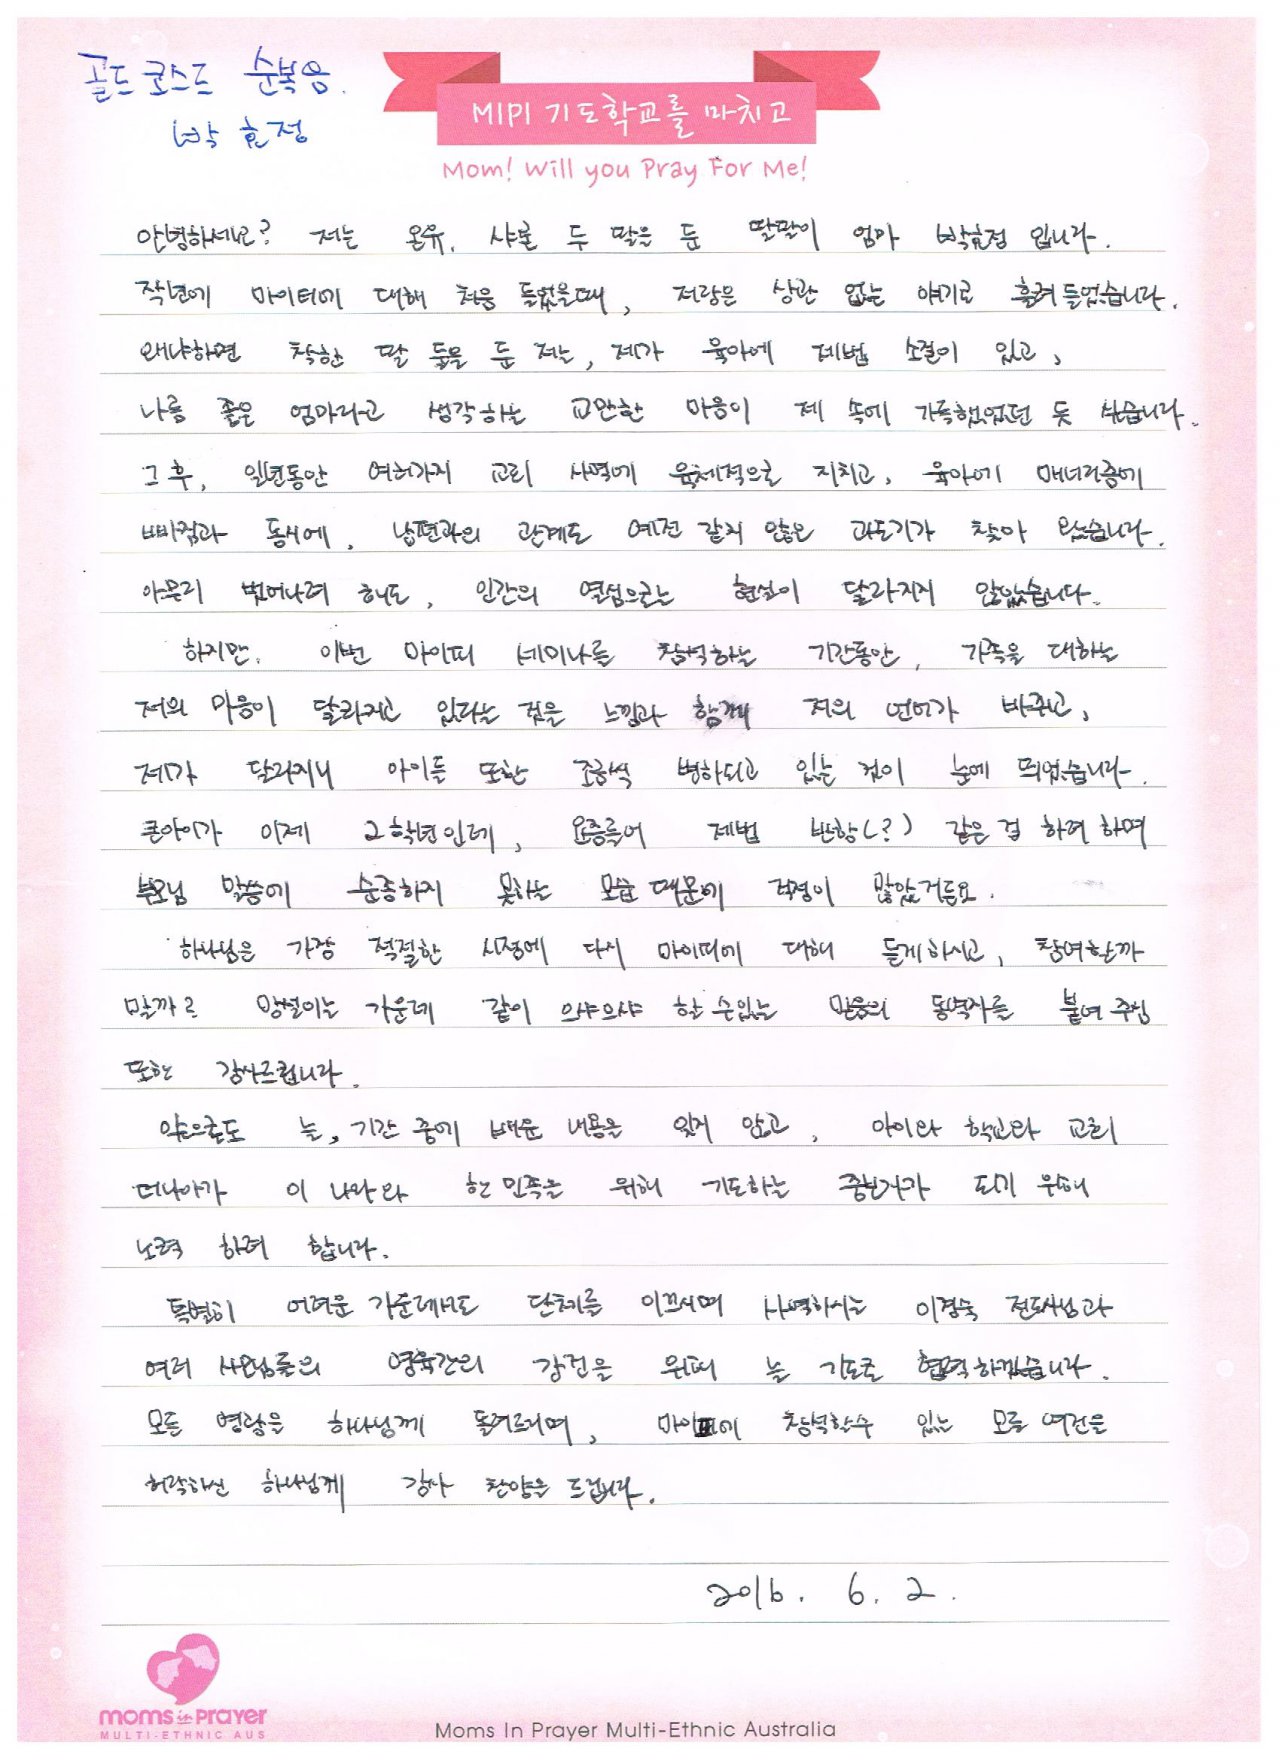 골드코스트 순복음.
박효정
MIPI 기도학교를 마치고
Mom! Will you Pray For Me!
안녕하세요? 저는 온유, 샤론 두 딸을 둔 딸딸이 엄마 박효정 입니다.
작년에 마이티에 대해 처음 들었을때, 저랑은 상관 없는 얘기로 흘려 들었습니다.
왜냐하면 착한 딸 둘을 둔 저는, 제가 육아에 제법 소질이 있고,
나름 좋은 엄마라고 생각하는 교만한 마음이 제 속에 가득했었던 듯 싶습니다.
그 후, 일년동안 여러가지 교회 사역에 육체적으로 지치고, 육아에 매너리즘에
빠짐과 동시에, 남편과의 관계도 예전 같지 않은 과도기가 찾아 왔습니다.
아무리 벗어나려 해도, 인간의 열심으로는 현실이 달라지지 않았습니다.
하지만, 이번 마이띠 세미나를 참석하는 기간동안, 가족을 대하는
저의 마음이 달라지고 있다는 것을 느낌과 함께 저의 언어가 바뀌고,
제가 달라지니 아이들 또한 조금씩 변화되고 있는 것이 눈에 띄었습니다.
큰아이가 이제 2학년인데, 요즘들어 제법 반항(?) 같은 걸 하려 하며
부모님 말씀에 순종하지 못하는 모습 때문에 걱정이 많았거든요.
하나님은 가장 적절한 시점에 다시 마이띠에 대해 듣게하시고, 참여할까
말까로 망설이는 가운데 같이 으샤으샤 할 수있는 믿음의 동역자를 붙여 주심
또한 감사드립니다.
앞으로도 늘, 기간 중에 배운 내용을 잊지 않고, 아이와 학교와 교회
더나아가 이 나라와 한 민족을 위해 기도하는 중보자가 되기 위해
노력 하려 합니다.
특별히 어려운 가운데서도 단체를 이끄시며 사역하시는 이경숙 전도사님과
여러 사모님들의 영육간의 강건을 위해 늘 기도로 협력하겠습니다.
모든 영광을 하나님께 돌려드리며, 마이띠에 참석할수 있는 모든 여건을
허락하신 하나님께 감사 찬양을 드립니다.
2016. 6. 2.
moms in prayer
MULTI-ETHNIC AUS
Moms In Prayer Multi-Ethnic Australia